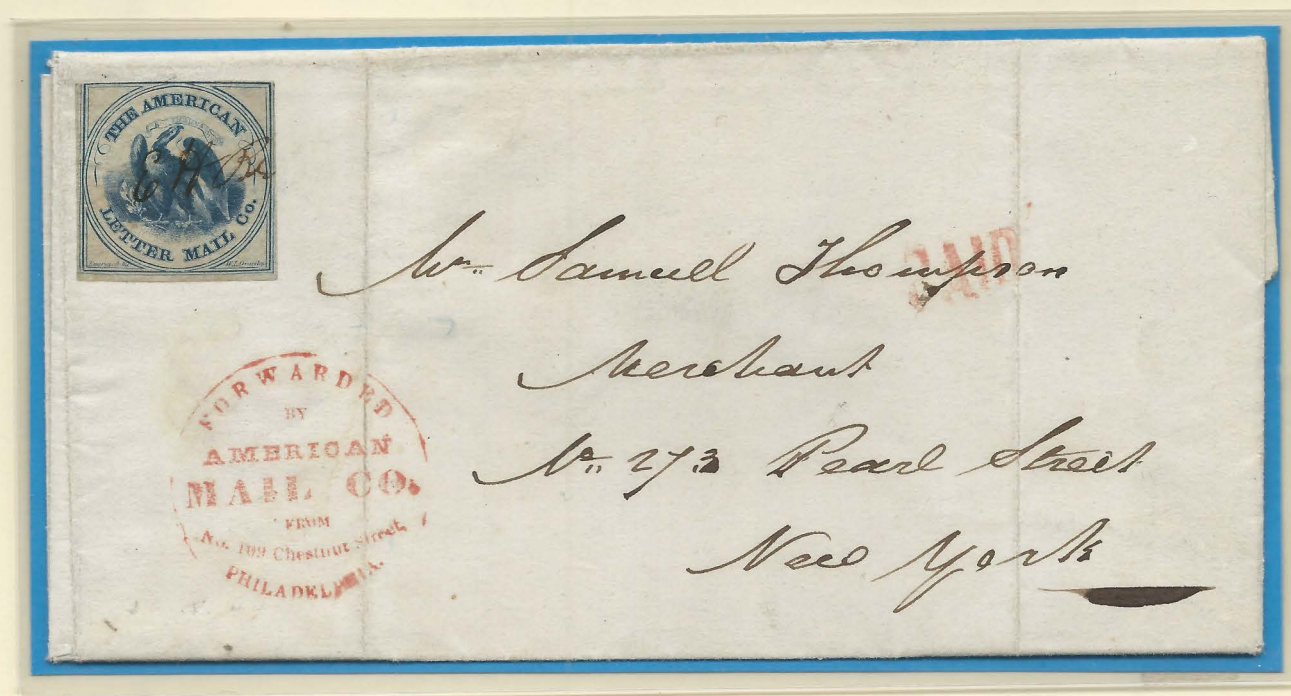 THE AMERICAN
LETTER MAIL Co.
Mr. Samuel Thompson
PAID
Merchant
No. 273 Pearl Street
New York
FORWARDED
BY
AMERICAN
MAIL CO.
FROM
No. 109 Chestnut Street,
PHILADELPHIA.